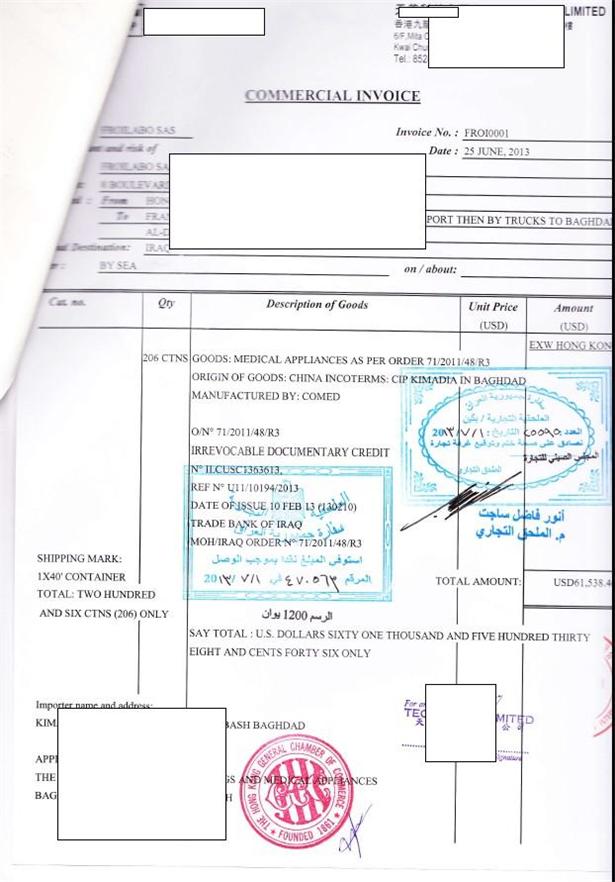 LIMITED
香港九龍
樓
6/F, Mita
Kwai Chu
Tel.: 852
COMMERCIAL INVOICE
FROILABO SAS
Invoice No. : FROI0001
ant and risk of
Date : 25 JUNE, 2013
FROILABO SA
8 BOULEVARD
From HON
To FRA
PORT THEN BY TRUCKS TO BAGHDA
AL-D
Destination: IRAQ
BY SEA
on / about:
Cat. no. Qty Description of Goods Unit Price Amount
(USD) (USD)
EXW HONG KON
206 CTNS GOODS: MEDICAL APPLIANCES AS PER ORDER 71/2011/48/R3
ORIGIN OF GOODS: CHINA INCOTERMS: CIP KIMADIA IN BAGHDAD
MANUFACTURED BY: COMED
سفارة جمهورية العراق
الملحقية التجارية / بكين
العدد ٢٥٥٩٥ التاريخ: ٢٠١٣/٧/١
نصادق على صحة ختم وتوقيع غرفة تجارة
المجلس الصيني للتجارة
الملحق التجاري
O/N° 71/2011/48/R3
IRREVOCABLE DOCUMENTARY CREDIT
N° ILCUSC1363613,
REF N° U11/10194/2013
DATE OF ISSUE 10 FEB 13 (130210)
TRADE BANK OF IRAQ
MOH/IRAQ ORDER N° 71/2011/48/R3
الملحقية التجارية
سفارة جمهورية العراق
استوفى المبلغ نقدا بموجب الوصل
المرقم ٤٧٠٥٦٣ في ٢٠١٣/٧/١
أنور فاضل ساجت
م. الملحق التجاري
SHIPPING MARK:
1X40' CONTAINER
TOTAL: TWO HUNDRED
AND SIX CTNS (206) ONLY
TOTAL AMOUNT: USD61,538.4
الرسم 1200 يوان
SAY TOTAL : U.S. DOLLARS SIXTY ONE THOUSAND AND FIVE HUNDRED THIRTY
EIGHT AND CENTS FORTY SIX ONLY
Importer name and address:
KIM
BASH BAGHDAD
For
TEC
MITED
天
公司
Signature
APP
THE
GS AND MEDICAL APPLIANCES
BAG
H
THE HONG KONG GENERAL CHAMBER OF COMMERCE
★ FOUNDED 1861 ★